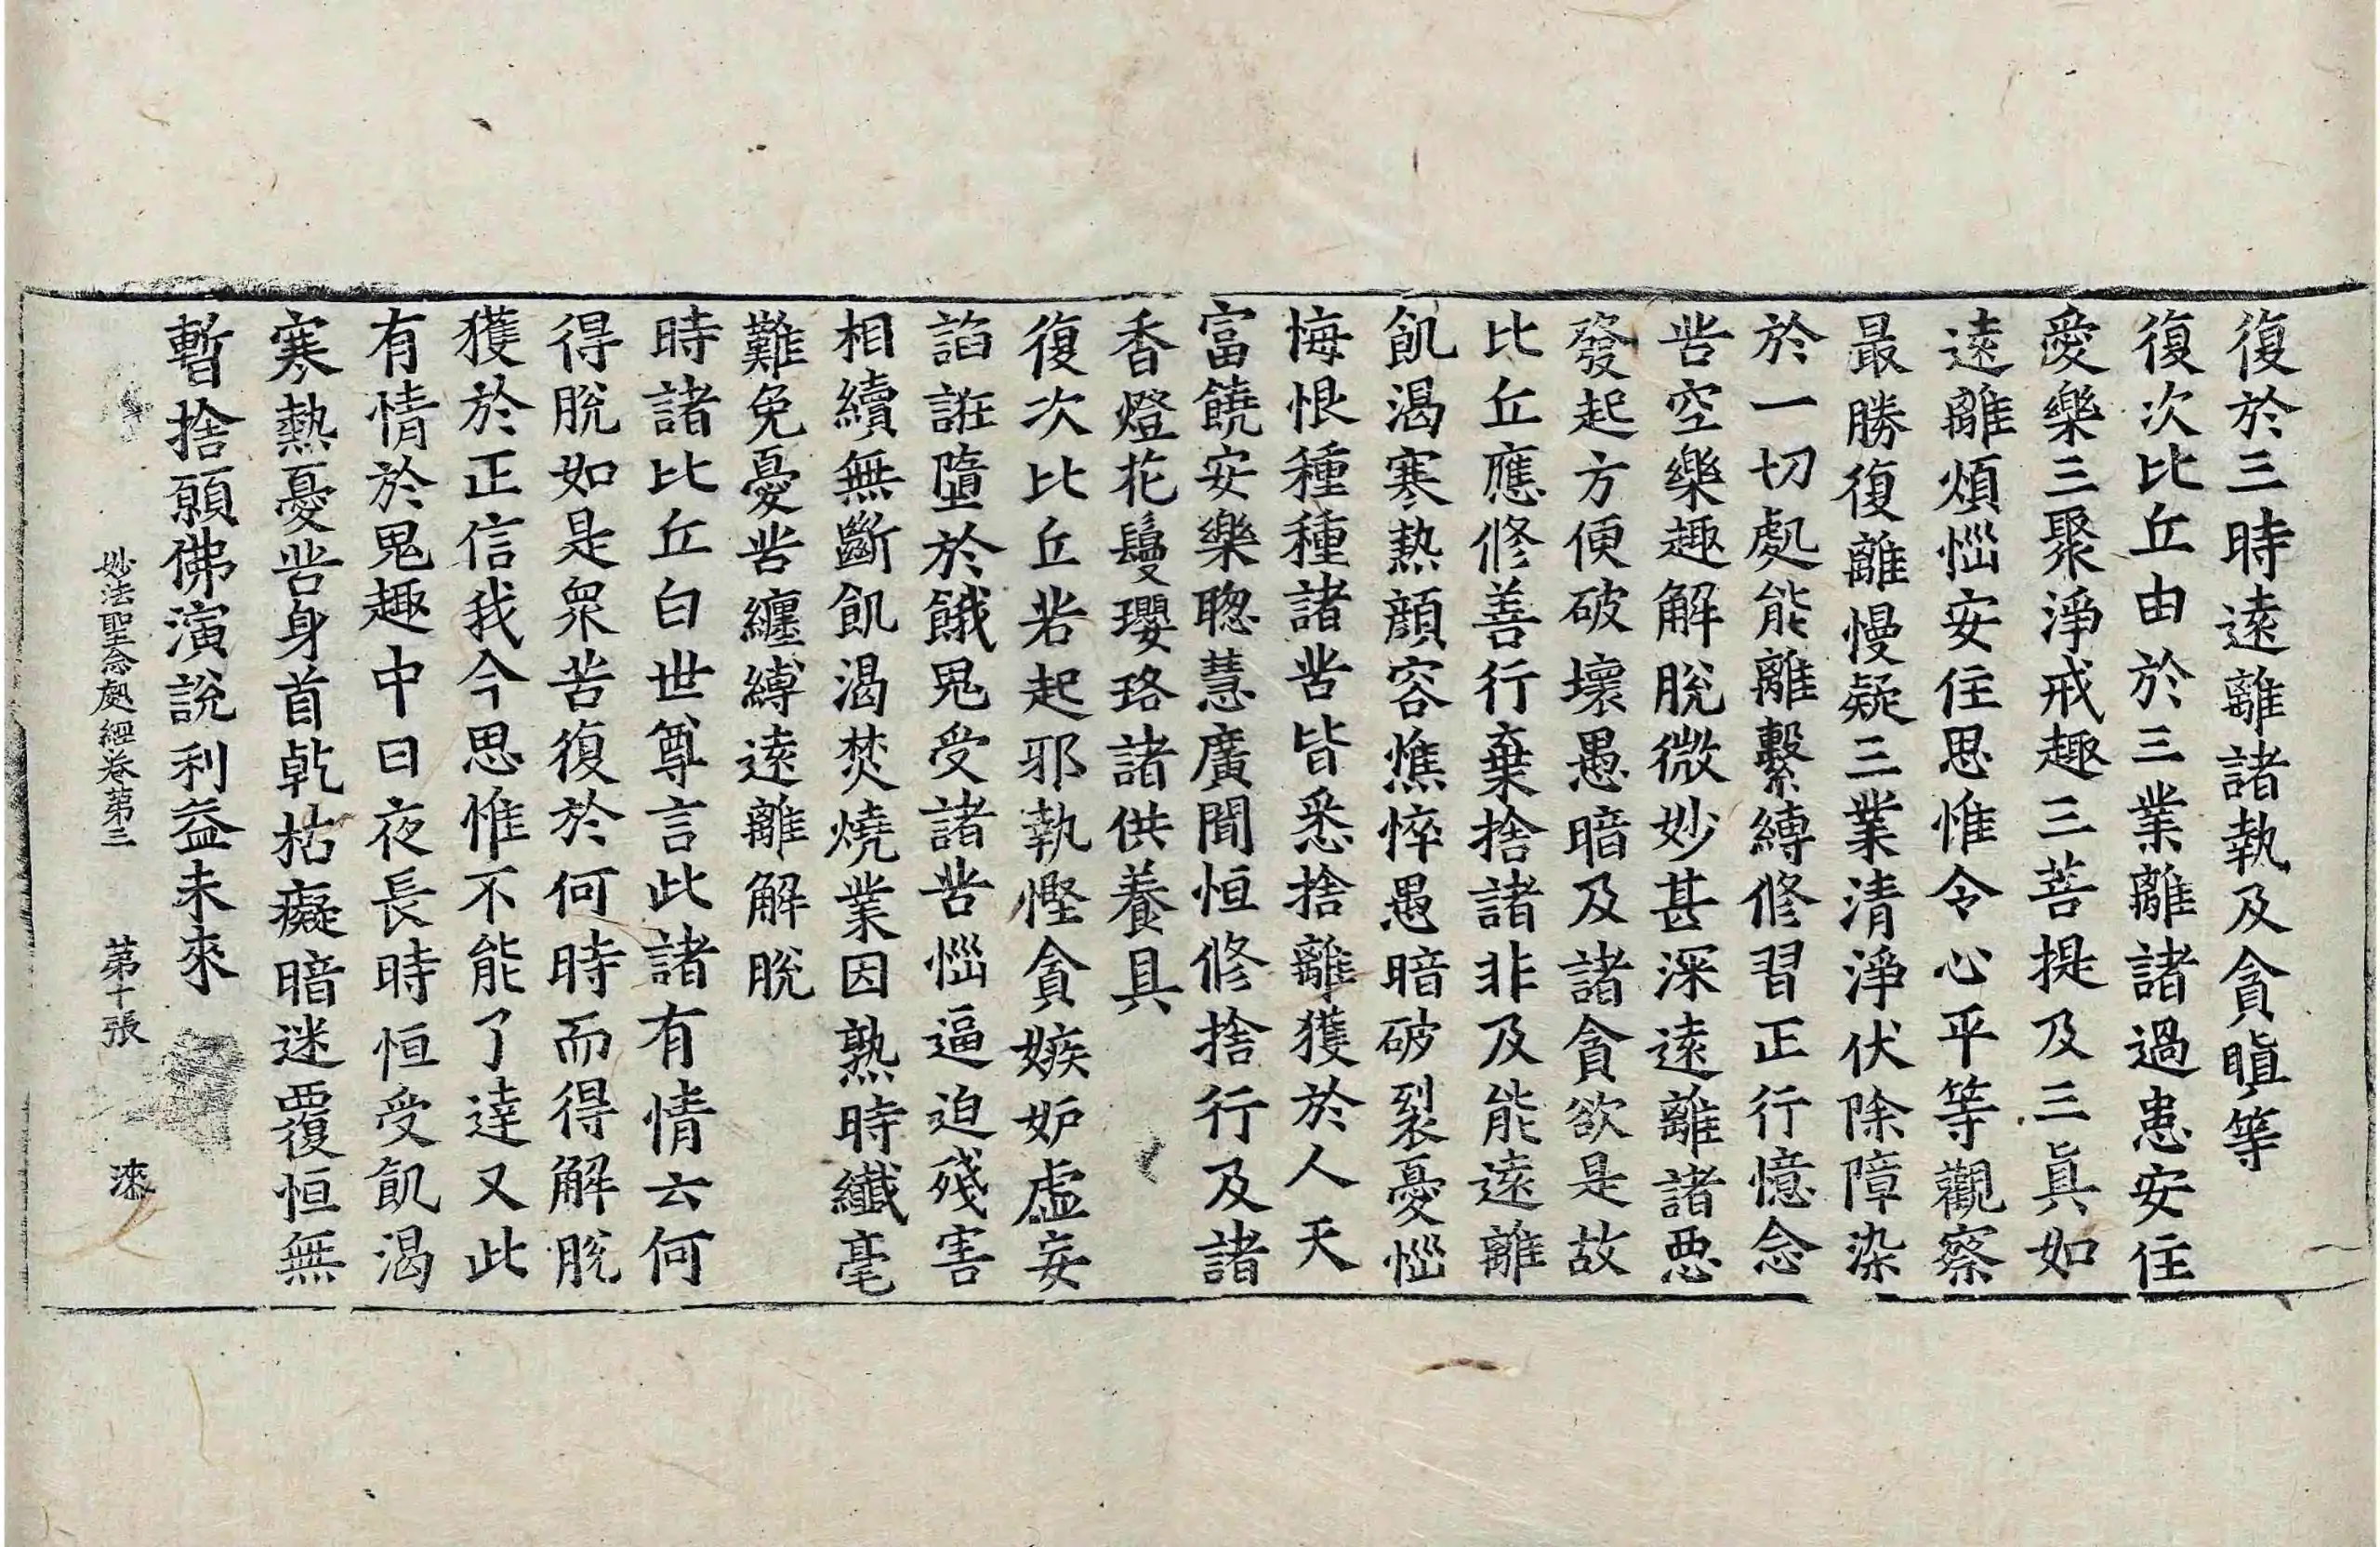 復於三時遠離諸執及貪瞋等
復次比丘由於三業離諸過患安住
愛樂三聚淨戒趣三菩提及三眞如
遠離煩惱安住思惟令心平等觀察
最勝復離慢疑三業清淨伏除障染
於一切處能離繫縛修習正行憶念
苦空樂趣解脫微妙甚深遠離諸惡
發起方便破壞愚暗及諸貪欲是故
比丘應修善行棄捨諸非及能遠離
飢渴寒熱顔容憔悴愚暗破裂憂惱
悔恨種種諸苦皆悉捨離獲於人天
富饒安樂聰慧廣聞恒修捨行及諸
香燈花鬘瓔珞諸供養具
復次比丘若起邪執慳貪嫉妒虛妄
諂誑墮於餓鬼受諸苦惱逼迫殘害
相續無斷飢渴焚燒業因熟時纖毫
難免憂苦纏縛遠離解脫
時諸比丘白世尊言此諸有情云何
得脫如是衆苦復於何時而得解脫
獲於正信我今思惟不能了達又此
有情於鬼趣中日夜長時恒受飢渴
寒熱憂苦身首乾枯癡暗迷覆恒無
暫捨願佛演說利益未來
妙法聖念處經卷第三 第十張 漆